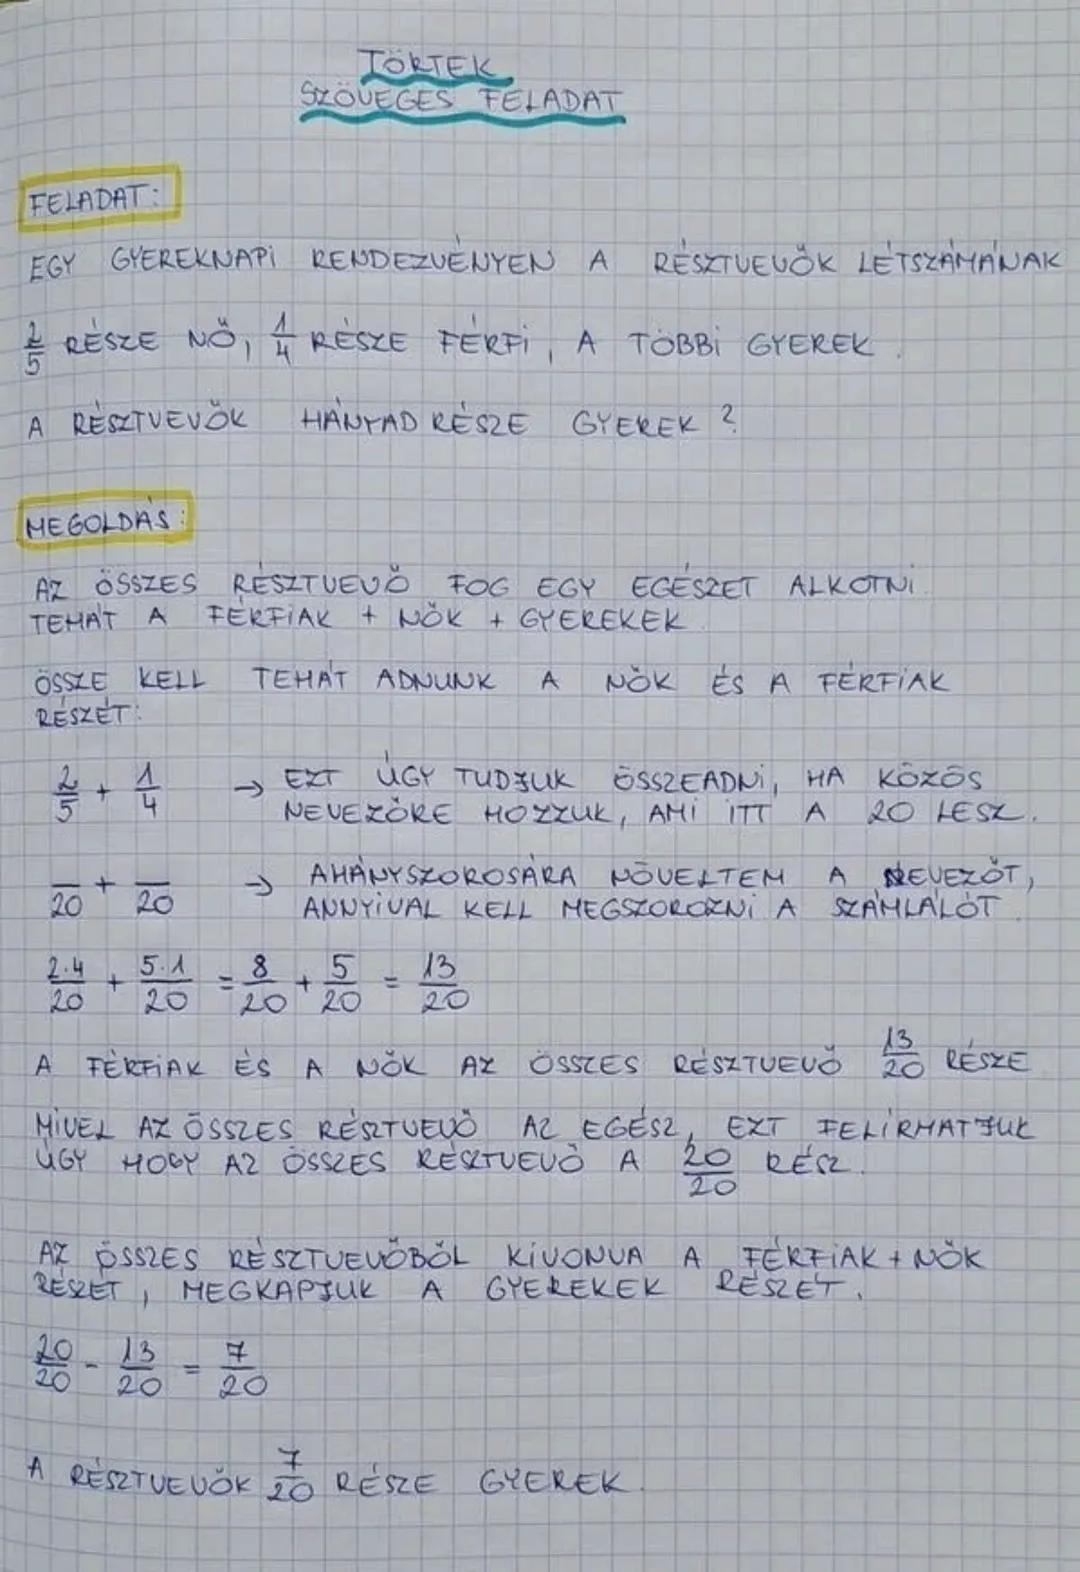 TÖRTEK
SZÖVEGES FELADAT
FELADAT:
EGY GYEREKNAPI RENDEZVÉNYEN A RÉSZTVEVŐK LÉTSZÁMÁNAK
2/5 RÉSZE NŐ, 1/4 RÉSZE FÉRFI, A TÖBBI GYEREK.
A RÉSZTVEVŐK HÁNYAD RÉSZE GYEREK?
MEGOLDÁS:
AZ ÖSSZES RÉSZTVEVŐ FOG EGY EGÉSZET ALKOTNI.
TEHÁT A FÉRFIAK + NŐK + GYEREKEK.
ÖSSZE KELL TEHÁT ADNUNK A NŐK ÉS A FÉRFIAK
RÉSZÉT:
2/5 + 1/4 → EZT ÚGY TUDJUK ÖSSZEADNI, HA KÖZÖS
NEVEZŐRE HOZZUK, AMI ITT A 20 LESZ.
/20 + /20 → AHÁNYSZOROSÁRA NÖVELTEM A NEVEZŐT,
ANNYIVAL KELL MEGSZOROZNI A SZÁMLÁLÓT.
2·4/20 + 5·1/20 = 8/20 + 5/20 = 13/20
A FÉRFIAK ÉS A NŐK AZ ÖSSZES RÉSZTVEVŐ 13/20 RÉSZE
MIVEL AZ ÖSSZES RÉSZTVEVŐ AZ EGÉSZ, EZT FELÍRHATJUK
ÚGY HOGY AZ ÖSSZES RÉSZTVEVŐ A 20/20 RÉSZ.
AZ ÖSSZES RÉSZTVEVŐBŐL KIVONVA A FÉRFIAK + NŐK
RÉSZÉT, MEGKAPJUK A GYEREKEK RÉSZÉT.
20/20 - 13/20 = 7/20
A RÉSZTVEVŐK 7/20 RÉSZE GYEREK.